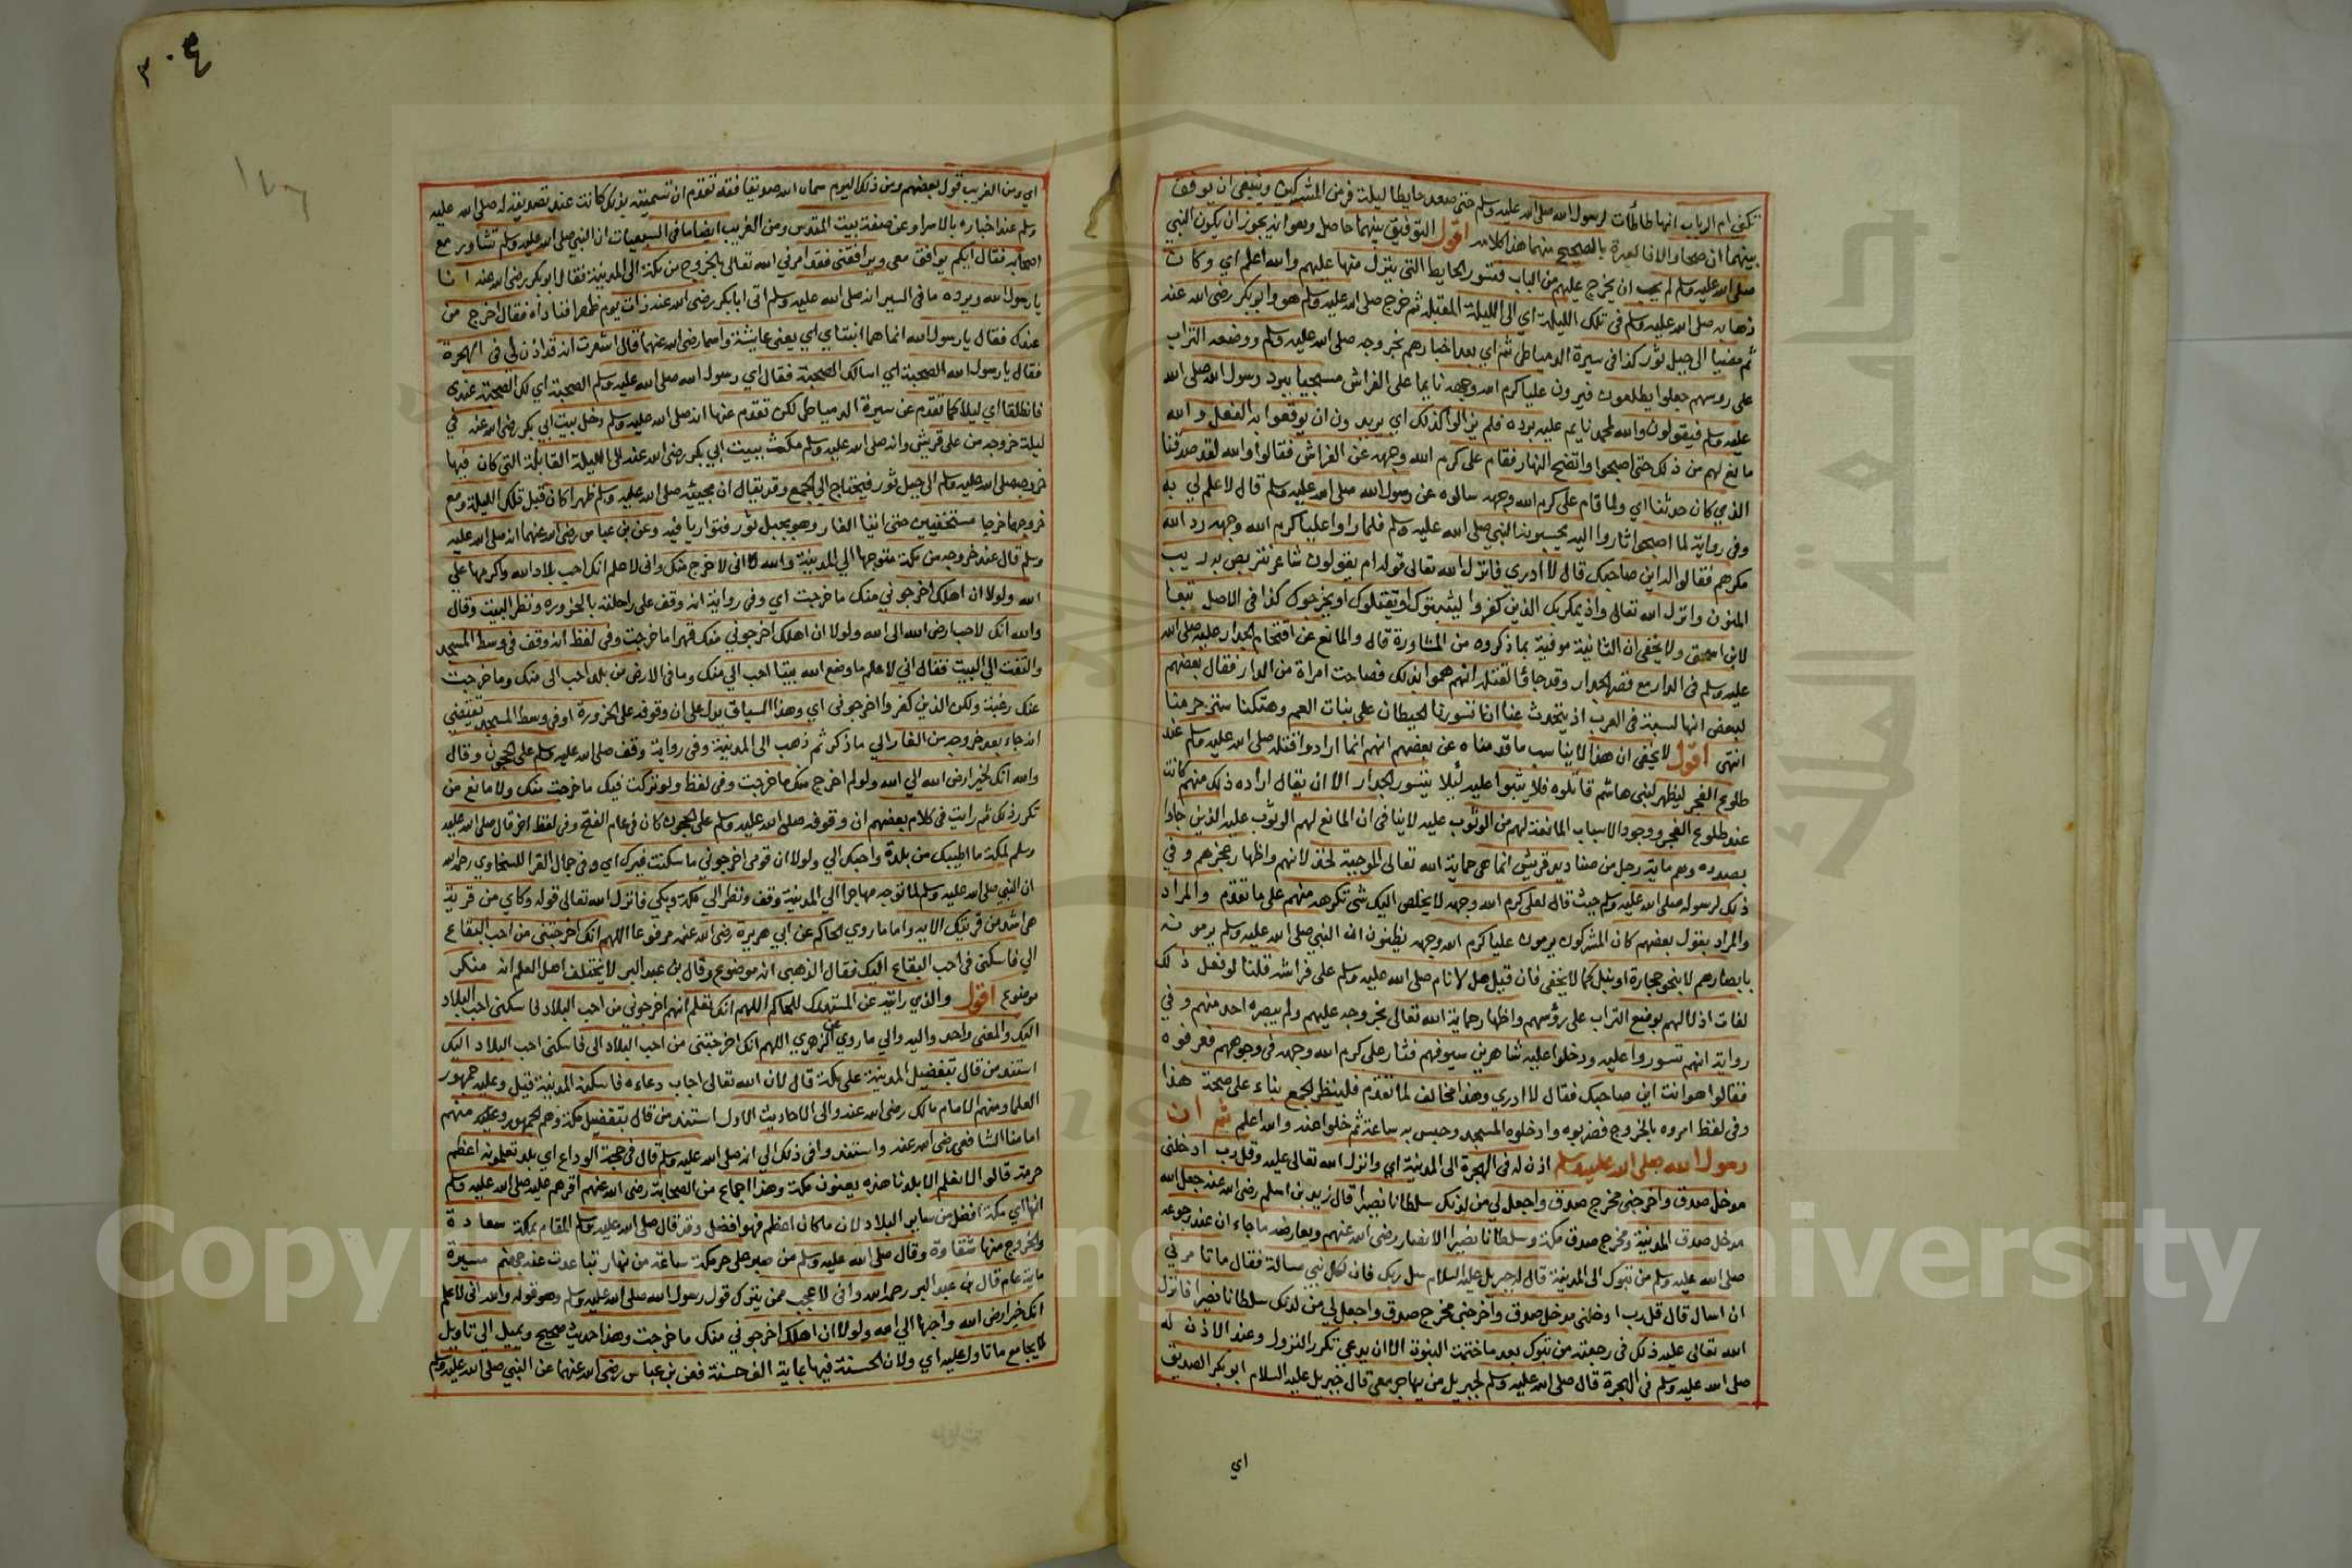 تكنى ام الرباب انها طأطأت لرسول الله صلى الله عليه وسلم حتى صعد حايطا ليلة فر من المشركين وينبغي ان يوفق
بينهما ان صحا والا فالعبرة بالصحيح منهما هذا كلامه اقول التوفيق بينهما حاصل وهو انه يجوز ان يكون النبي
صلى الله عليه وسلم لم يحب ان يخرج عليهم من الباب فتسور الحايط التي ينزل منها عليهم والله اعلم اي وكان
ذهابه صلى الله عليه وسلم في تلك الليلة اي الى الليلة المقبلة ثم خرج صلى الله عليه وسلم هو وابو بكر رضي الله عنه
ثم مضيا الى جبل ثور كذا في سيرة الدمياطي ثم اي بعد اخبارهم بخروجه صلى الله عليه وسلم ووضعه التراب
على روسهم جعلوا يطلعون فيرون عليا كرم الله وجهه نايما على الفراش مسجيا ببرد رسول الله صلى الله
عليه وسلم فيقولون والله لمحمد نايم عليه برده فلم يزالوا كذلك اي يريدون ان يوقعوا به الفعل والله
مانع لهم من ذلك حتى اصبحوا واتضح النهار فقام علي كرم الله وجهه عن الفراش فقالوا والله لقد صدقنا
الذي كان حدثنا اي ولما قام علي كرم الله وجهه سالوه عن رسول الله صلى الله عليه وسلم قال لا علم لي به
وفي رواية لما اصبحوا ثاروا اليه يحسبونه النبي صلى الله عليه وسلم فلما راوا عليا كرم الله وجهه رد الله
مكرهم فقالوا له اين صاحبك قال لا ادري فانزل الله تعالى قوله ام يقولون شاعر نتربص به ريب
المنون وانزل الله تعالى واذ يمكر بك الذين كفروا ليثبتوك او يقتلوك او يخرجوك كذا في الاصل تبعا
لابن اسحق ولا يخفى ان الثانية موفية بما ذكروه من المشاورة قال والمانع عن اقتحام الجدار عليه صلى الله
عليه وسلم في الدار مع قصر الجدار وقد جاؤا لقتله انهم هموا بذلك فصاحت امراة من الدار فقال بعضهم
لبعض انها لسبة في العرب ان يتحدث عنا انا تسورنا الحيطان على بنات العم وهتكنا ستر حرمنا
انتهى اقول لا يخفى ان هذا لا يناسب ما قدمناه عن بعضهم انهم انما ارادوا قتله صلى الله عليه وسلم عند
طلوع الفجر ليظهر لبني هاشم قاتلوه فلا يثبوا عليه ليلا بتسور الجدار الا ان يقال اراده ذلك منهم كانت
عند طلوع الفجر ووجود الاسباب المانعة لهم من الوثوب عليه لا ينافي ان المانع لهم الوثوب عليه الذين جاوا
بصدده وهم ماية رجل من صناديد قريش انما هي حماية الله تعالى الموجبة لخذلانهم واظهار عجزهم وفي
ذلك لرسوله صلى الله عليه وسلم حيث قال لعلي كرم الله وجهه لا يخلص اليك شي تكرهه منهم على ما تقدم والمراد
والمراد بقول بعضهم كان المشركون يرمون عليا كرم الله وجهه يظنون انه النبي صلى الله عليه وسلم يرمونه
بابصارهم لا بنحو حجارة او نبل كما لا يخفى فان قيل هلا نام صلى الله عليه وسلم على فراشه قلنا لو فعل ذلك
لفات اذلالهم بوضع التراب على رؤسهم واظهار حماية الله تعالى بخروجه عليهم ولم يبصره احد منهم وفي
رواية انهم تسوروا عليه ودخلوا عليه شاهرين سيوفهم فثار علي كرم الله وجهه في وجوههم فعرفوه
فقالوا هو انت اين صاحبك فقال لا ادري وهذا مخالف لما تقدم فلينظر الجمع بناء على صحة هذا
وفي لفظ امروه بالخروج فضربوه وادخلوه المسجد وحبس به ساعة ثم خلوا عنه والله اعلم ثم ان
رسول الله صلى الله عليه وسلم اذن له في الهجرة الى المدينة اي وانزل الله تعالى عليه وقل رب ادخلني
مدخل صدق واخرجني مخرج صدق واجعل لي من لدنك سلطانا نصيرا قال زيد بن اسلم رضي الله عنه جعل الله
مدخل صدق المدينة ومخرج صدق مكة وسلطانا نصيرا الانصار رضي الله عنهم ويعارضه ما جاء ان عند رجوعه
صلى الله عليه وسلم من تبوك الى المدينة قال له جبريل عليه السلام سل ربك فان لكل نبي مسالة فقال ما تامرني
ان اسال قال قل رب ادخلني مدخل صدق واخرجني مخرج صدق واجعل لي من لدنك سلطانا نصيرا فانزل
الله تعالى عليه ذلك في رجعته من تبوك بعد ما ختمت النبوة الا ان يدعى تكرر النزول وعند الاذن له
صلى الله عليه وسلم في الهجرة قال صلى الله عليه وسلم لجبريل من يهاجر معي قال جبريل عليه السلام ابو بكر الصديق
اي
٣٠٤
اي ومن الغريب قول بعضهم ومن ذلك اليوم سماه الله صديقا فقد تقدم ان تسميته بذلك كانت عند تصديقه له صلى الله عليه
وسلم عند اخباره بالاسرا وعن صفة بيت المقدس ومن الغريب ايضا ما في السبعيات ان النبي صلى الله عليه وسلم تشاور مع
اصحابه فقال ايكم يوافق معي ويرافقني فقد امرني الله تعالى بالخروج من مكة الى المدينة فقال ابو بكر رضي الله عنه انا
يا رسول الله ويرده ما في السير انه صلى الله عليه وسلم اتى ابا بكر رضي الله عنه ذات يوم ظهرا فناداه فقال اخرج من
عندك فقال يا رسول الله انما هما ابنتاي اي يعني عايشة واسما رضي الله عنهما قال اشعرت انه قد اذن لي في الهجرة
فقال يا رسول الله الصحبة اي اسالك الصحبة فقال اي رسول الله صلى الله عليه وسلم الصحبة اي لك الصحبة عندي
فانطلقا اي ليلا كما تقدم عن سيرة الدمياطي لكن تقدم عنها انه صلى الله عليه وسلم دخل بيت ابي بكر رضي الله عنه في
ليلة خروجه من على قريش وانه صلى الله عليه وسلم مكث ببيت ابي بكر رضي الله عنه الى الليلة القابلة التي كان فيها
خروجه صلى الله عليه وسلم الى جبل ثور فيحتاج الى الجمع وقد يقال ان مجيئه صلى الله عليه وسلم ظهرا كان قبل تلك الليلة ومع
خروجهما خرجا مستخفيين حتى اتيا الغار وهو بجبل ثور فتواريا فيه وعن بن عباس رضي الله عنهما انه صلى الله عليه
وسلم قال عند خروجه من مكة متوجها الى المدينة والله اني لاخرج منك واني لاعلم انك احب بلاد الله واكرمها على
الله ولولا ان اهلك اخرجوني منك ما خرجت اي وفي رواية انه وقف على راحلته بالحزورة ونظر البيت وقال
والله انك لاحب ارض الله الى الله ولولا ان اهلك اخرجوني منك قهرا ما خرجت وفي لفظ انه وقف في وسط المسجد
والتفت الى البيت فقال اني لاعلم ما وضع الله بيتا احب الي منك وما في الارض من بلد احب الي منك وما خرجت
عنك رغبة ولكن الذين كفروا اخرجوني اي وهذا السياق يدل على ان وقوفه على الحزورة او في وسط المسجد يقتضي
انه جاء بعد خروجه من الغار الى ما ذكر ثم ذهب الى المدينة وفي رواية وقف صلى الله عليه وسلم على الحجون وقال
والله انك لخير ارض الله الى الله ولو لم اخرج منك ما خرجت وفي لفظ ولو تركت فيك ما خرجت منك ولا مانع من
تكرر ذلك ثم رايت في كلام بعضهم ان وقوفه صلى الله عليه وسلم على الحجون كان في عام الفتح وفي لفظ اخر قال صلى الله عليه
وسلم لمكة ما اطيبك من بلدة واحبك الي ولولا ان قومي اخرجوني ما سكنت غيرك اي وفي جمال القرا للسخاوي رحمه الله
ان النبي صلى الله عليه وسلم لما توجه مهاجرا الى المدينة وقف ونظر الى مكة وبكي فانزل الله تعالى قوله وكاي من قرية
هي اشد من قريتك الايه واما ما روي الحاكم عن ابي هريرة رضي الله عنه مرفوعا اللهم انك اخرجتني من احب البقاع
الي فاسكني في احب البقاع اليك فقال الذهبي انه موضوع وقال بن عبد البر لا يختلف اهل العلم انه منكر
موضوع اقول والذي رايته عن المستدرك للحاكم اللهم انك تعلم انهم اخرجوني من احب البلاد فاسكني احب البلاد
اليك والمعنى واحد واليه والي ما روي عن الزهري اللهم انك اخرجتني من احب البلاد الي فاسكني احب البلاد اليك
استند من قال بتفضيل المدينة على مكة قال لان الله تعالى اجاب دعاءه فاسكنه المدينة قيل وعليه جمهور
العلما ومنهم الامام مالك رضي الله عنه والى الاحاديث الاول استند من قال بتفضيل مكة وهم الجمهور وعليه منهم
امامنا الشافعي رضي الله عنه واستندوا في ذلك الى انه صلى الله عليه وسلم قال في حجة الوداع اي بلد تعلمونه اعظم
حرمة قالوا لا نعلم الا بلدنا هذه يعنون مكة وهذا اجماع من الصحابة رضي الله عنهم اقرهم عليه صلى الله عليه وسلم
انها اي مكة افضل من ساير البلاد لان ما كان اعظم فهو افضل وقد قال صلى الله عليه وسلم المقام بمكة سعادة
والخروج منها شقاوة وقال صلى الله عليه وسلم من صبر على حر مكة ساعة من نهار تباعدت عنه جهنم مسيرة
ماية عام قال بن عبد البر رحمه الله واني لاعجب ممن يترك قول رسول الله صلى الله عليه وسلم وهو قوله والله اني لاعلم
انك خير ارض الله واحبها الى الله ولولا ان اهلك اخرجوني منك ما خرجت وهذا حديث صحيح ويميل الى تاويل
لا يجامع ما تاوله عليه اي ولان الحسنة فيها بماية الف حسنة فعن بن عباس رضي الله عنهما عن النبي صلى الله عليه وسلم